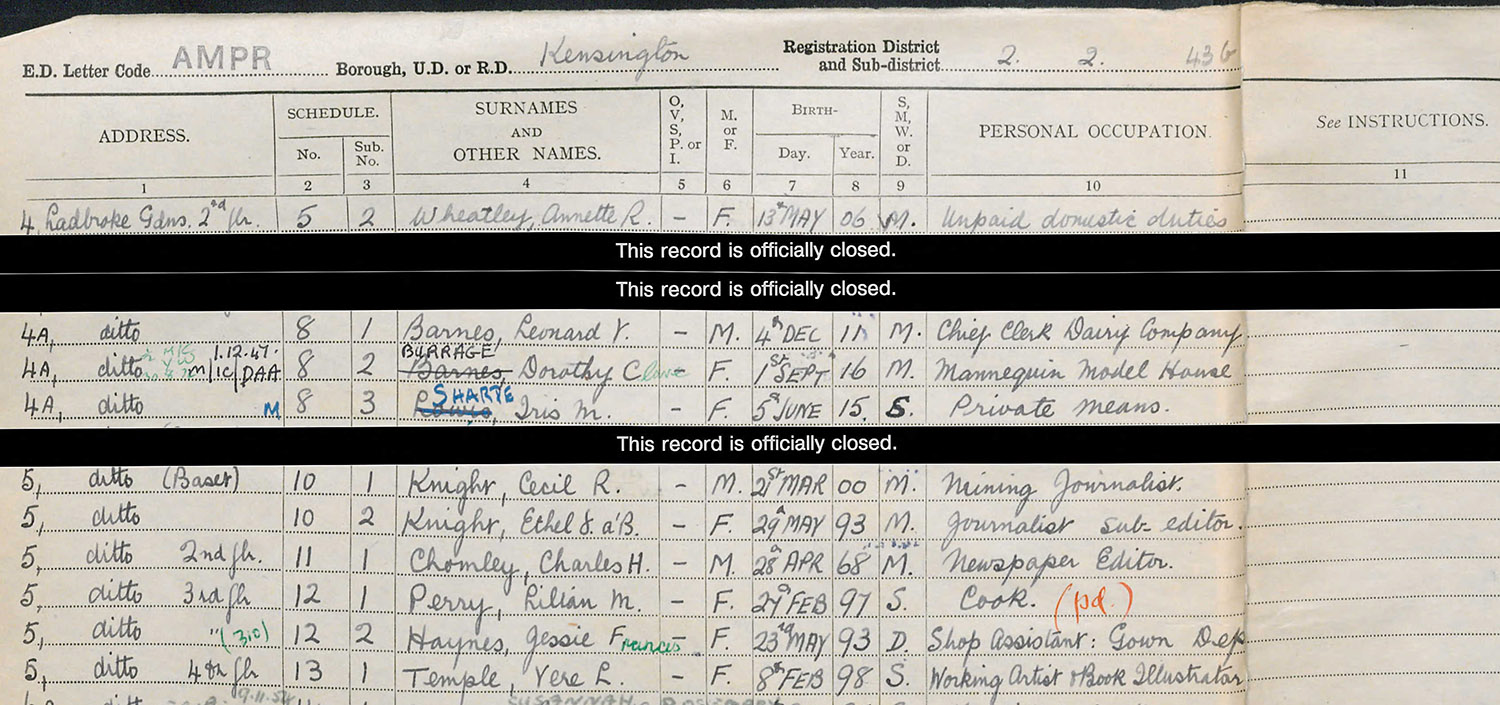 E.D. Letter Code AMPR Borough, U.D. or R.D. Kensington Registration District and Sub-district 2. 2. 43 b
ADDRESS. SCHEDULE. No. Sub. No. SURNAMES AND OTHER NAMES. O, V, S, P. or I. M. or F. BIRTH- Day. Year. S, M, W. or D. PERSONAL OCCUPATION. See INSTRUCTIONS.
1 2 3 4 5 6 7 8 9 10 11
4 Ladbroke Gdns. 2nd flr. 5 2 Wheatley, Annette R. - F. 13th MAY 06 M. Unpaid domestic duties
This record is officially closed.
This record is officially closed.
4A, ditto 8 1 Barnes, Leonard V. - M. 4th DEC 11 M. Chief Clerk Dairy Company
1.12.47. BURRAGE
4A, ditto M/1C/DAA 8 2 Barnes, Dorothy Clare - F. 1st SEPT 16 M. Mannequin Model House
SHARPE
4A, ditto M 8 3 Iris M. - F. 5th JUNE 15. S. Private means.
This record is officially closed.
5, ditto (Baset) 10 1 Knight, Cecil R. - M. 21st MAR 00 M. Mining Journalist.
5, ditto 10 2 Knight, Ethel F. a'B. - F. 29th MAY 93 M. Journalist sub-editor.
5, ditto 2nd flr. 11 1 Chomley, Charles H. - M. 28th APR 68 M. Newspaper Editor.
5, ditto 3rd flr 12 1 Perry, Lilian M. - F. 27th FEB 97 S. Cook. (pd.)
5, ditto " (310) 12 2 Haynes, Jessie Frances - F. 23rd MAY 93 D. Shop Assistant: Gown Dep
5, ditto 4th flr 13 1 Temple, Vere L. - F. 8th FEB 98 S. Working Artist & Book Illustrator
9.11.54 SUSANNAH ROSEMARY